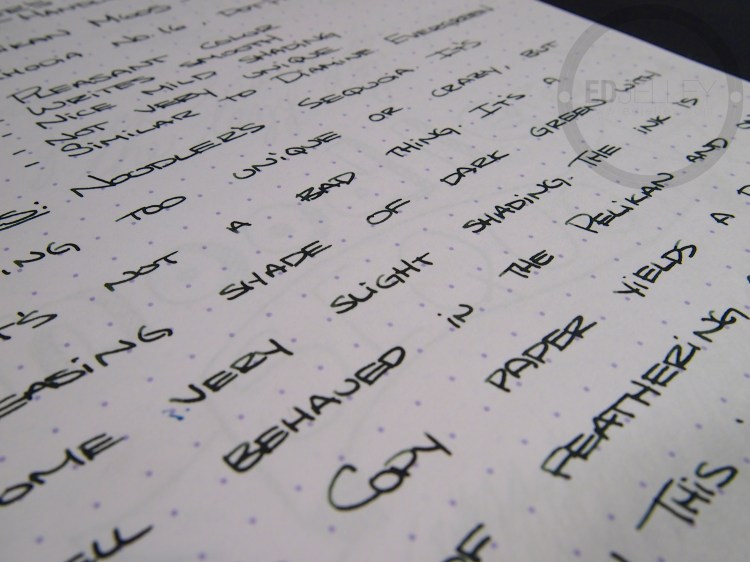 Pelikan M
Rhodia No. 16, Dot P
- Pleasant color
- Writes smooth
- Nice mild shading
- Not very unique
- Similar to Diamine Evergreen
S: Noodler's Sequoia isn't
ing too unique or crazy, but
t's not a bad thing. It's a
easing shade of dark green with
ome very slight shading. The ink is
ell behaved in the Pelikan and
Copy paper yields a
of feathering
This
EDJELLEY